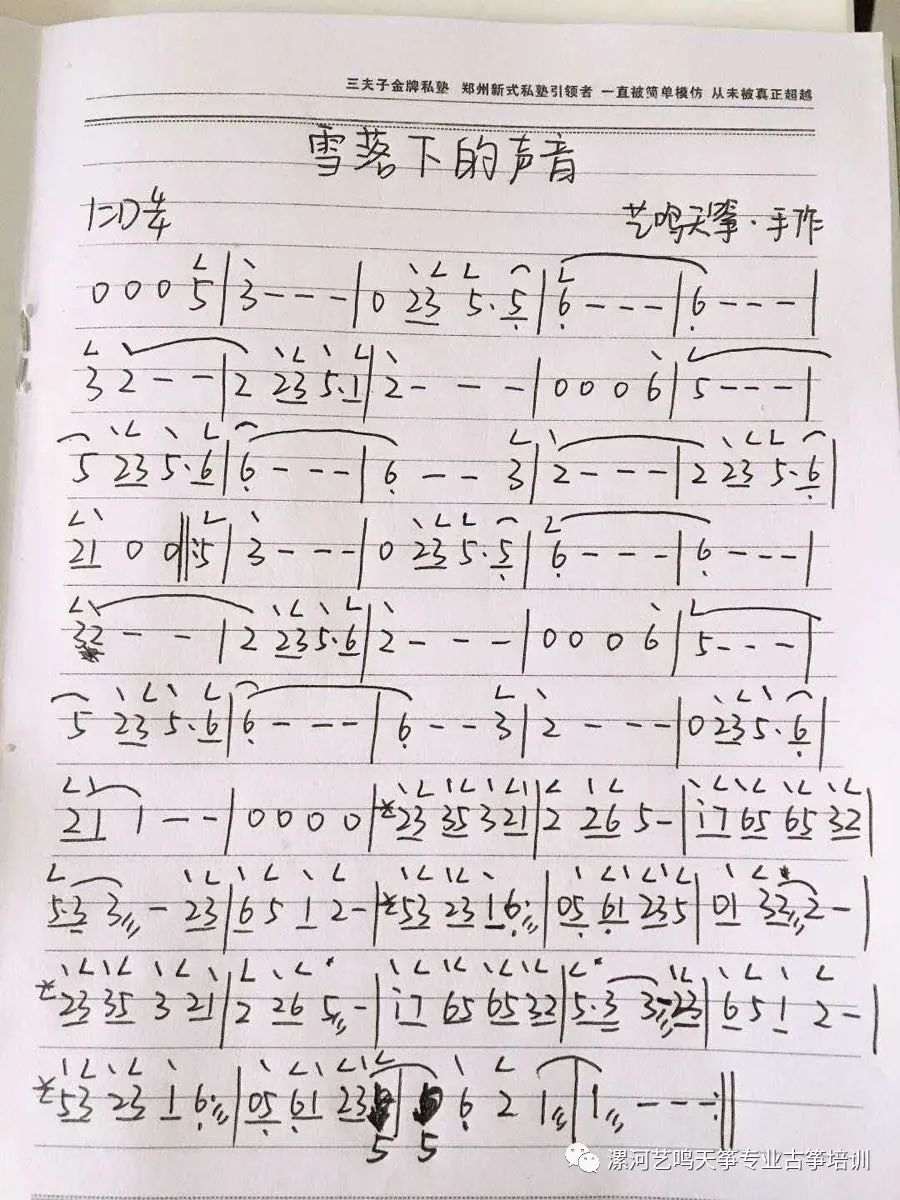 三夫子金牌私塾 郑州新式私塾引领者 一直被简单模仿 从未被真正超越
雪落下的声音
1=D 4/4 艺鸣天筝·手作
0 0 0 5 | 3 - - - | 0 23 5· 5 | 6 - - - | 6 - - - |
3 2 - - | 2 23 5·1 | 2 - - - | 0 0 0 6 | 5 - - - |
5 23 5·6 | 6 - - - | 6 - - 3 | 2 - - - | 2 23 5·6 |
21 0 0 ‖: 5 | 3 - - - | 0 23 5·5 | 6 - - - | 6 - - - |
32 - - | 2 23 5·6 | 2 - - - | 0 0 0 6 | 5 - - - |
5 23 5·6 | 6 - - - | 6 - - 3 | 2 - - - | 0 23 5·6 |
21 1 - - | 0 0 0 0 | 23 35 3 21 | 2 26 5 - | i7 65 65 32 |
5·3 3 - 23 | 6 5 1 2 - | 53 23 1 6 | 05 61 23 5 | 01 32 2 - |
23 35 3 21 | 2 26 5 - | i7 65 65 32 | 5·3 3 - 23 | 6 5 1 2 - |
53 23 1 6 | 05 61 23 5 | 5 6 2 1 | 1 - - - :‖
漯河艺鸣天筝专业古筝培训